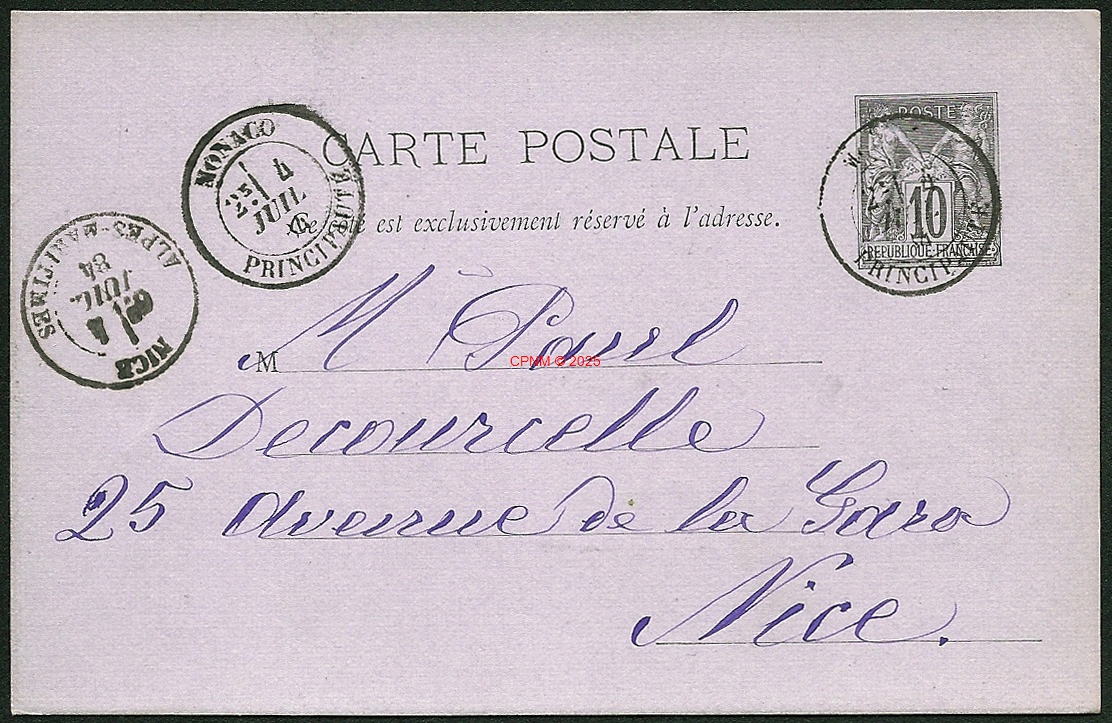 CARTE POSTALE
Ce côté est exclusivement réservé à l'adresse.
POSTE
10
REPUBLIQUE FRANÇAISE
MONACO
4
JUIL
PRINCIPAUTÉ
PRINCIPAUTÉ
NICE
4
JUIL.
84
ALPES-MARITIMES
M M Paul
CPNM © 2025
Decourcelle
25 Avenue de la Gare
Nice.